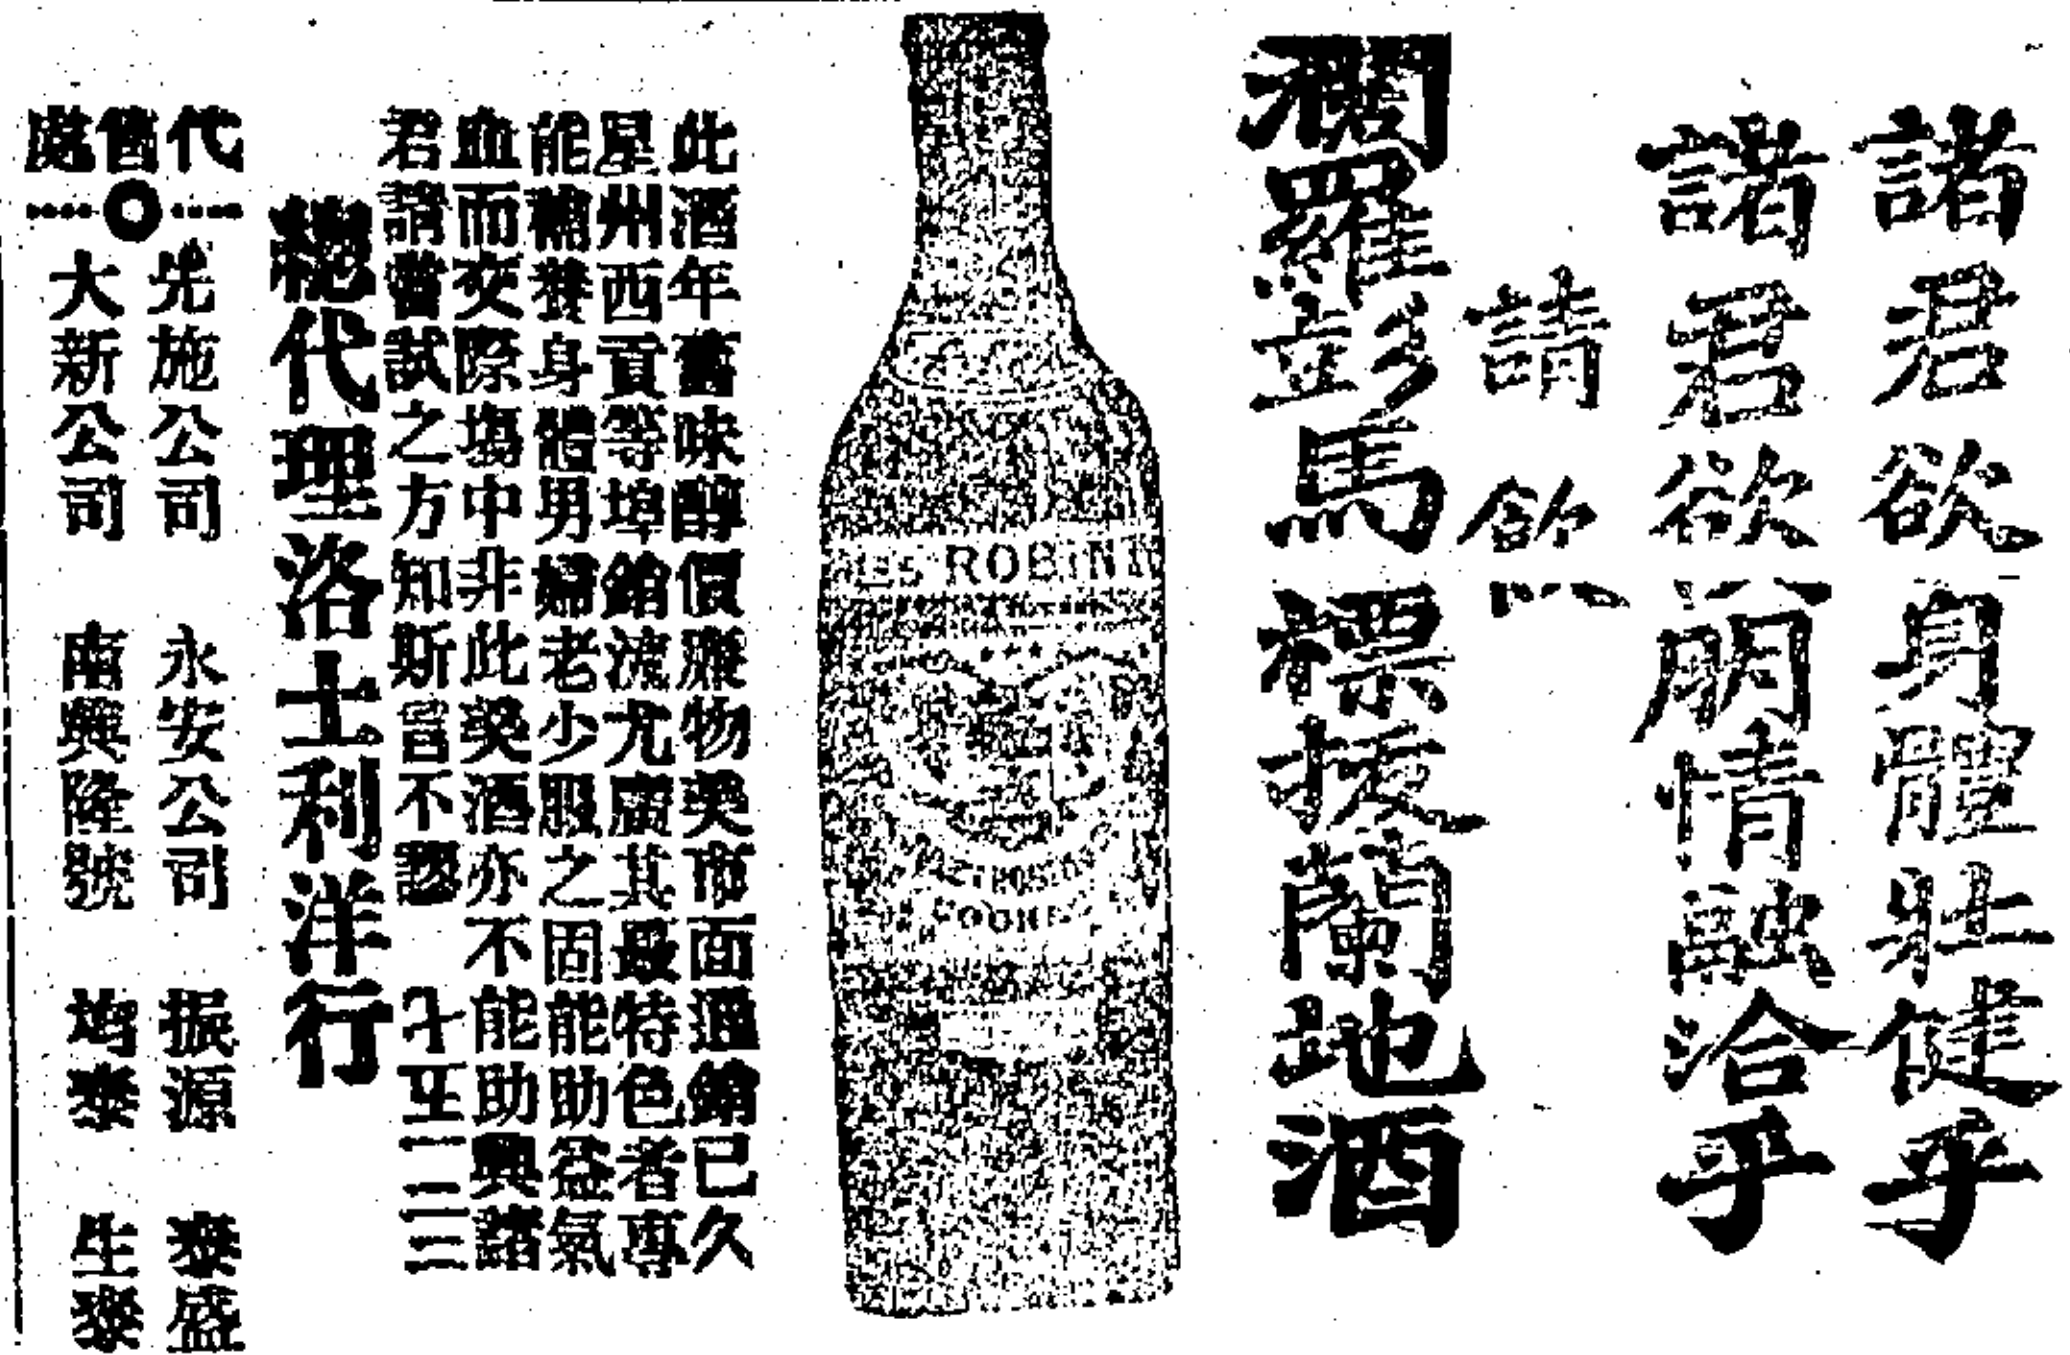 諸君欲身體壯健乎
諸君欲朋情融洽乎
請飲
濶羅彭馬標拔蘭地酒
JULES ROBIN
COGNAC
此酒年舊味醇價廉物美市面通銷已久
星州西貢等埠銷流尤廣其最特色者專
能補養身體男婦老少服之固能助益氣
血而交際塲中非此美酒亦不能助興諸
君請嘗試之方知斯言不謬
總代理洛士利洋行
代售處
先施公司 永安公司 振源 泰盛
大新公司 南興隆號 均泰 生泰